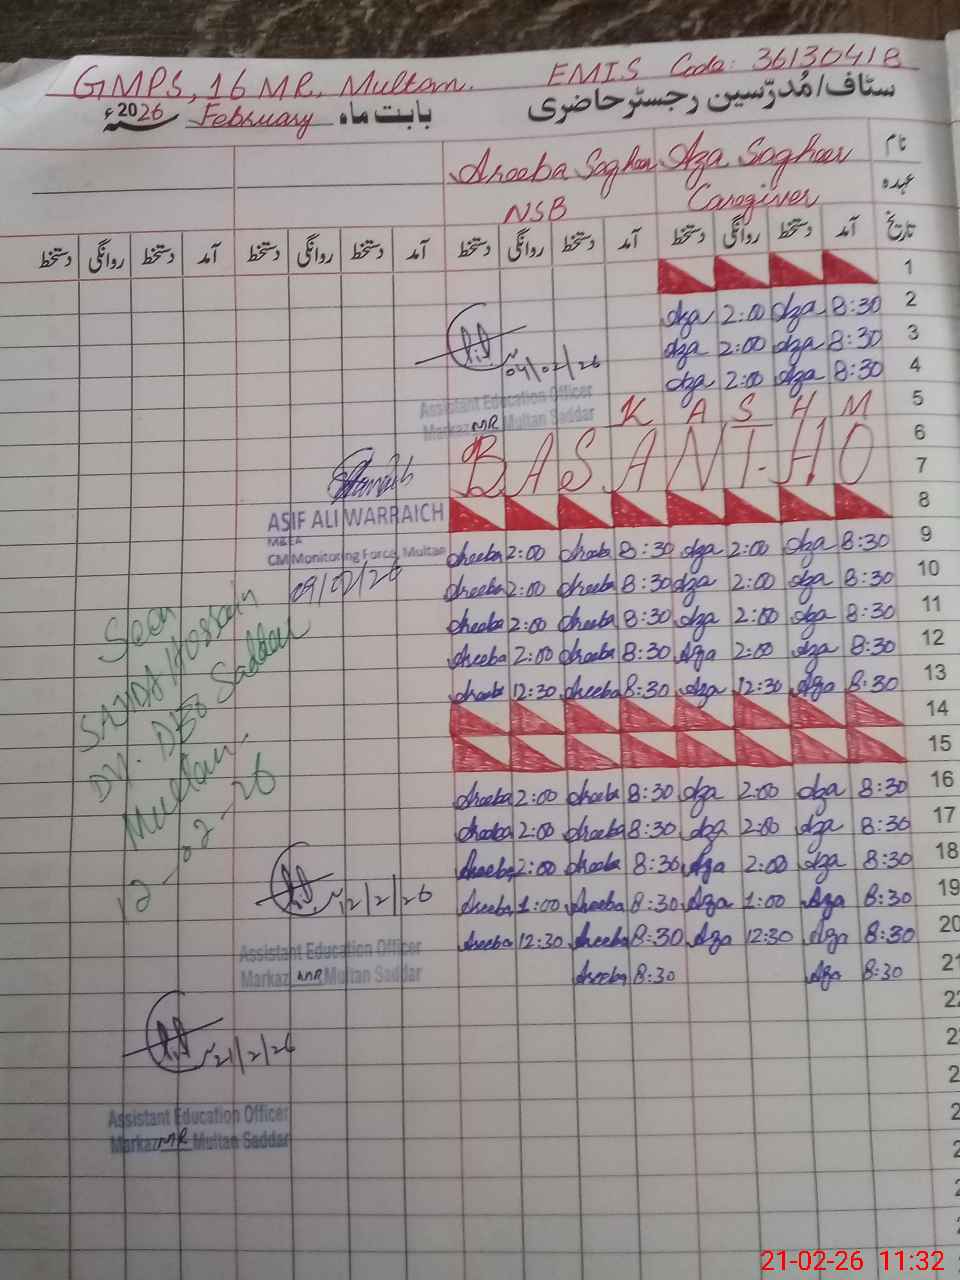 GMPS, 16 MR, Multan. EMIS Code: 36130418
سٹاف/مُدرّسین رجسٹر حاضری بابت ماہ February 2026ء
نام Aza Sagheer Areeba Sagheer
عہدہ Caregiver NSB
تاریخ آمد دستخط روانگی دستخط آمد دستخط روانگی دستخط آمد دستخط روانگی دستخط آمد دستخط روانگی دستخط
1
Aza 2:00 Aza 8:30 2
Aza 2:00 Aza 8:30 3
Aza 2:00 Aza 8:30 4
04/02/26
Assistant Education Officer
Markaz MR Multan Saddar
K A S H M 5
BASANT-HO 6
7
8
ASIF ALI WARRAICH
M&EA
CM Monitoring Force, Multan
09/02/26
Areeba 2:00 Areeba 8:30 Aza 2:00 Aza 8:30 9
Areeba 2:00 Areeba 8:30 Aza 2:00 Aza 8:30 10
Areeba 2:00 Areeba 8:30 Aza 2:00 Aza 8:30 11
Areeba 2:00 Areeba 8:30 Aza 2:00 Aza 8:30 12
Areeba 12:30 Areeba 8:30 Aza 12:30 Aza 8:30 13
14
15
Seen
Dy. DEO Saddar
Multan.
12-02-26
Areeba 2:00 Areeba 8:30 Aza 2:00 Aza 8:30 16
Areeba 2:00 Areeba 8:30 Aza 2:00 Aza 8:30 17
Areeba 2:00 Areeba 8:30 Aza 2:00 Aza 8:30 18
Areeba 1:00 Areeba 8:30 Aza 1:00 Aza 8:30 19
Areeba 12:30 Areeba 8:30 Aza 12:30 Aza 8:30 20
Areeba 8:30 Aza 8:30 21
12/2/26
Assistant Education Officer
Markaz MR Multan Saddar
22
21/2/26
Assistant Education Officer
Markaz MR Multan Saddar
21-02-26 11:32